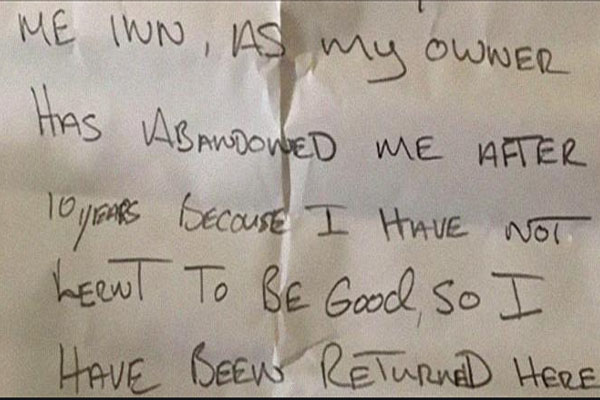 ME INN, AS my OWNER
HAS ABANDOWED ME AFTER
10 YEARS BECOUSE I HAVE NOT
LERNT TO BE Good, SO I
HAVE BEEN RETURNED HERE